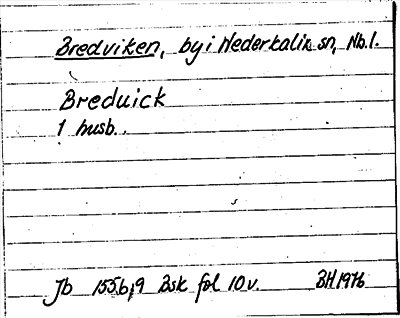 Bredviken, by i Nederkalix sn, Nb.l.
Breduick
1 husb.
Jb 155b;9 Bsk fol 10v. BH 1976